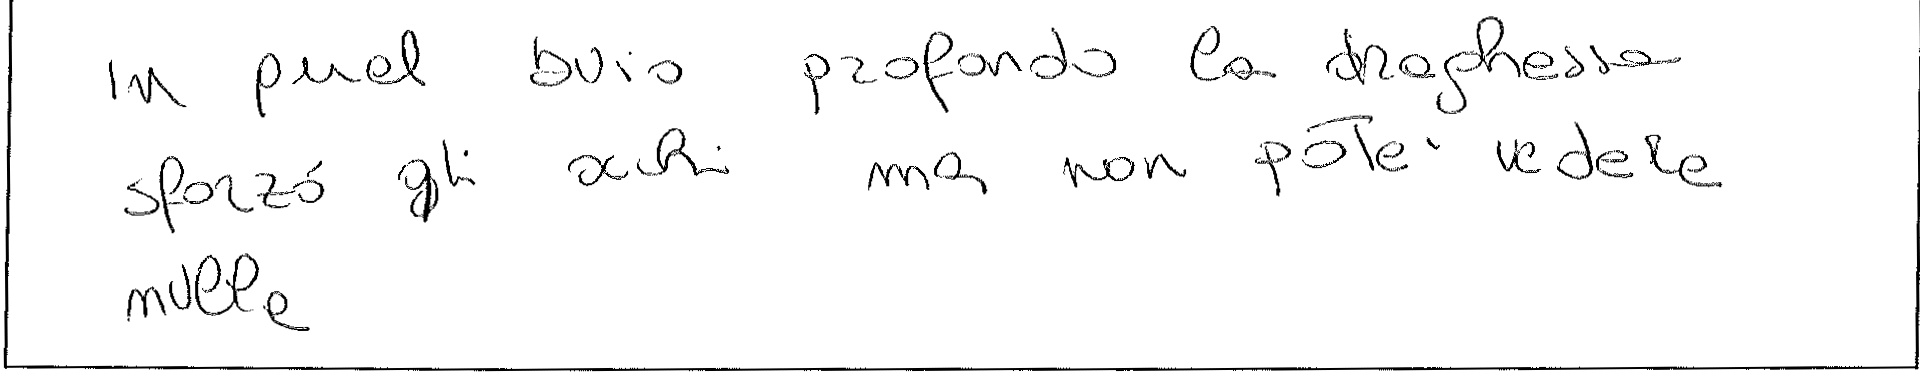 In quel buio profondo la draghessa
sforzó gli occhi ma non poté vedere
nulla